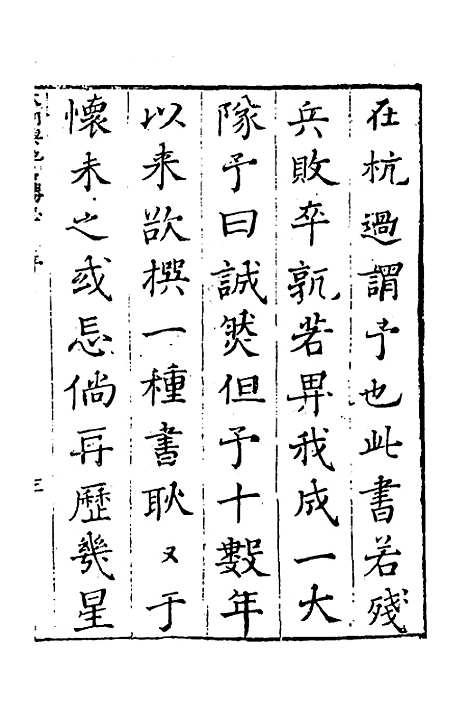 在杭過謂予也此書若殘
兵敗卒孰若畀我成一大
隊予曰誠然但予十數年
以来欲撰一種書耿〻于
懷未之或忘倘再歷幾星